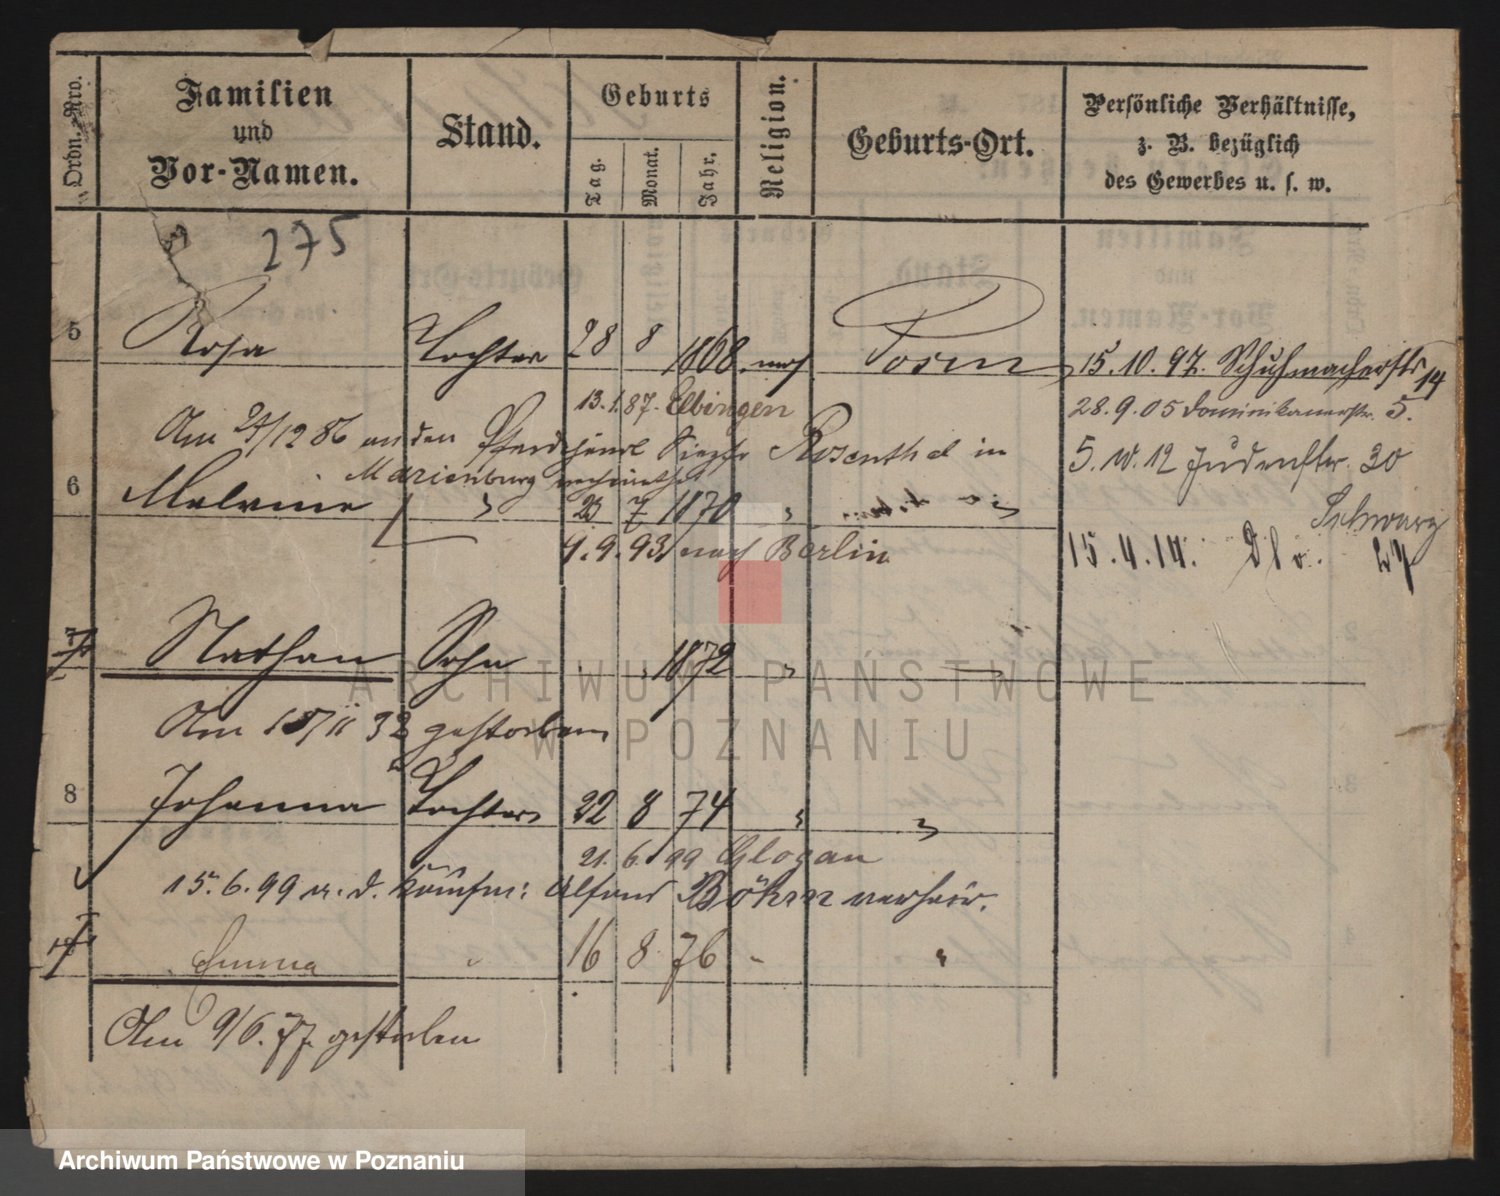 Ordn.-Nro.
Familien
und
Vor-Namen.
Stand.
Geburts
Tag.
Monat.
Jahr.
Religion.
Geburts-Ort.
Persönliche Verhältnisse,
z. B. bezüglich
des Gewerbes u. s. w.
275
5 Rosa Tochter 28 8 1868 mos Posen 15.10.97. Schuhmacherstr 14
13.1.87. Elbingen 28.9.05 Dominikanerstr. 5.
Am 27/12 86 an den Pferdehändl Rosenthal in 5. 10. 12 Judenstr. 30
Marienburg verheirathet
6 Malvine " 23 7 1870 "
Schwarz
4.9.93 nach Berlin 15.4.14. Dlo. 24
7 Nathan Sohn 1872 "
Am 18/11 32 gestorben
8 Johanna Tochter 22 8 74 " "
21. 6. 99 Glogau
15.6.99 m. d. Kaufm: Böhm verheir.
Emma " 16 8 76 - "
Am 9/6. 77 gestorben
ARCHIWUM PAŃSTWOWE
W POZNANIU
Archiwum Państwowe w Poznaniu